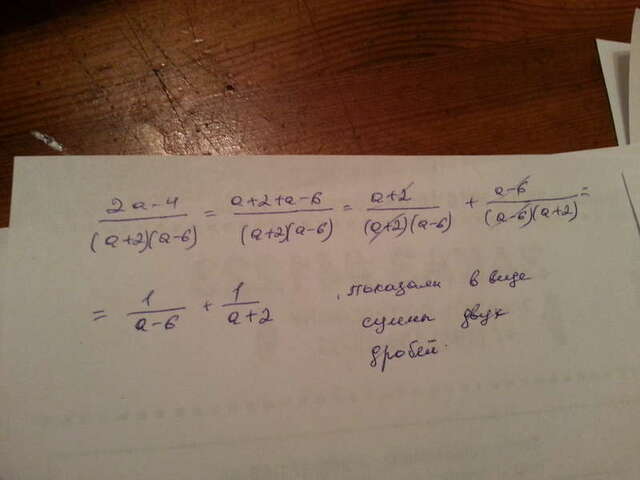 2a-4/(a+2)(a-6) = a+2+a-6/(a+2)(a-6) = a+2/(a+2)(a-6) + a-6/(a-6)(a+2) =
= 1/a-6 + 1/a+2
показали в виде
суммы двух
дробей.